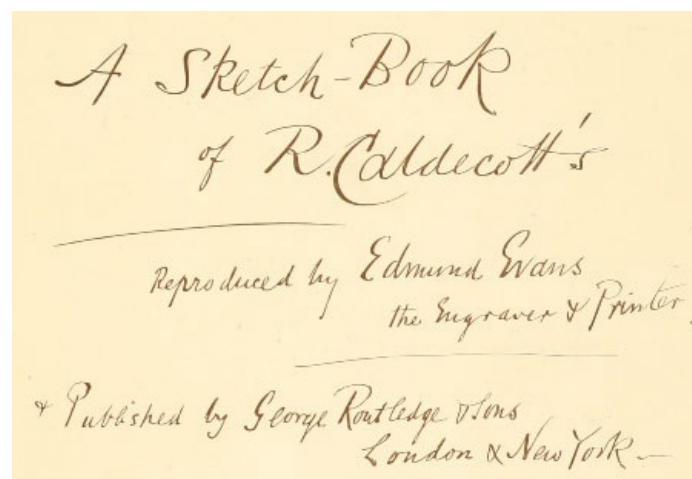 A Sketch-Book
of R. Caldecott's
Reproduced by Edmund Evans
the Engraver & Printer
& Published by George Routledge & Sons
London & New York —